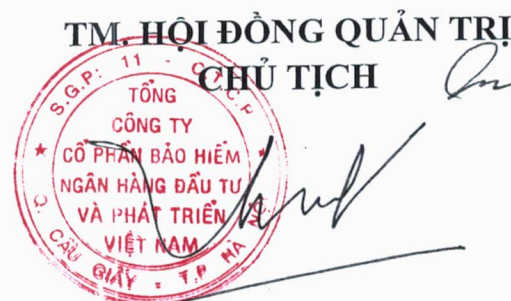 TM. HỘI ĐỒNG QUẢN TRỊ
CHỦ TỊCH
S.G.P: 11 - C.T.C.P
TỔNG
CÔNG TY
CỔ PHẦN BẢO HIỂM
NGÂN HÀNG ĐẦU TƯ
VÀ PHÁT TRIỂN
VIỆT NAM
Q. CẦU GIẤY - T.P HÀ